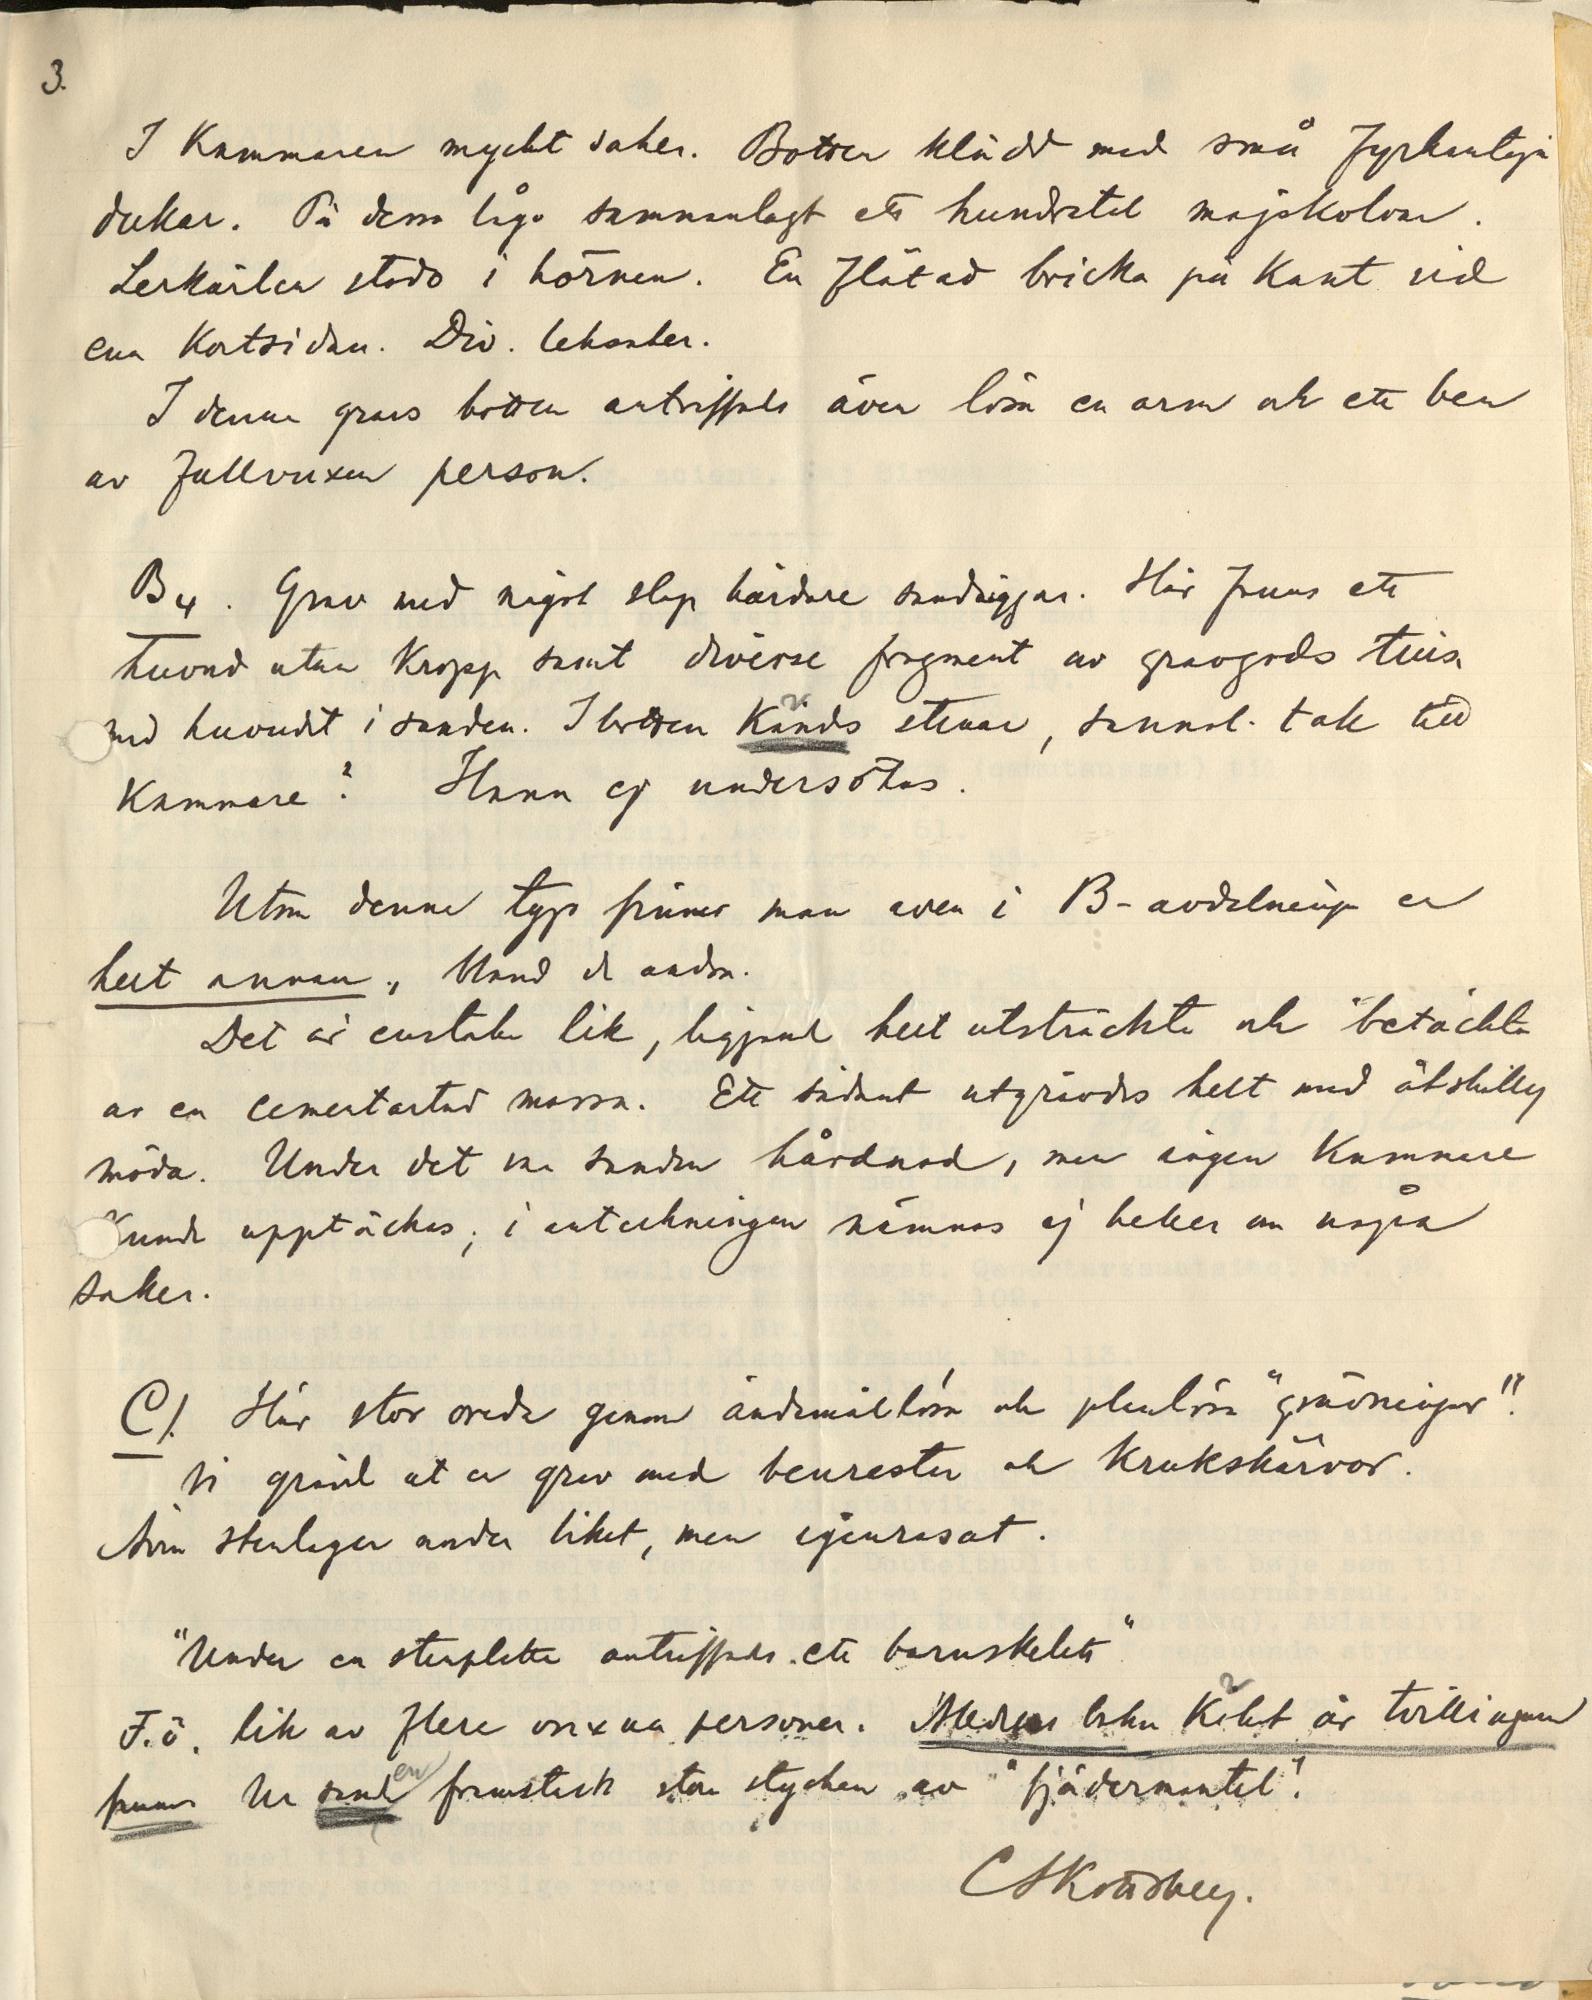 3.
I Kammaren mycket saker. Botten klädd med små fyrkantiga
dukar. På dessa lågo sammanlagt ett hundratal majskolvar.
Lerkärlen stodo i hörnen. En flätad bricka på kant vid
ena kortsidan. Div. leksaker.
I denna gravs botten anträffades även lösa en arm och ett ben
av fullvuxen person.
B4. Grav med något slags hårdare sandväggar. Här fanns ett
huvud utan kropp samt diverse fragment av gravgods tills.
med huvudet i sanden. I botten kändes stenar, sannol. tak till
kammare? Hann ej undersökas.
Utom denna typ finner man även i B-avdelningen en
helt annan, bland de andra.
Det är enstaka lik, liggande helt utsträckta och betäckta
av en cementartad massa. Ett sådant utgrävdes helt med åtskillig
möda. Under det var sanden hårdnad, men ingen kammare
kunde upptäckas; i anteckningen nämnes ej heller om några
saker.
C). Här stor oreda genom ändamålslösa och planlösa "grävningar".
Vi grävde ut en grav med benrester och krukskärvor.
Även stenlager under liket, men igenrasat.
"Under en stenplatta anträffades ett barnskelett"
F.ö. lik av flere vuxna personer. är tvillingarna
funna Ur sanden framstack stora stycken av "fjädermantel".
CSkottsberg.